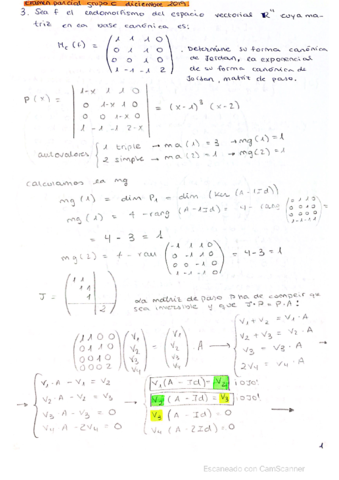 examen parcial grupo c diciembre 2019
3. Sea f el endomorfismo del espacio vectorial R⁴ cuya ma-
triz en la base canónica es:
Mc(f) = ( 1 1 1 0
0 1 1 0
0 0 1 0
1 -1 -1 2 ) . Determine su forma canónica
de Jordan, la exponencial
de su forma canónica de
Jordan, matriz de paso.
P(x) = | 1-x 1 1 0
0 1-x 1 0
0 0 1-x 0
1 -1 -1 2-x | = (x-1)³ (x-2)
autovalores { 1 triple → ma(1) = 3 → mg(1) = 1
2 simple → ma(2) = 1 → mg(2) = 1
calculamos la mg
mg(1) = dim P₁ = dim (ker (A-1Id))
mg(1) = 4 - rang (A-1Id) = 4 - rang ( 0 1 1 0
0 0 1 0
0 0 0 0
1 -1 -1 1 )
= 4 - 3 = 1
mg(2) = 4 - ran ( -1 1 1 0
0 -1 1 0
0 0 -1 0
1 -1 -1 0 ) = 4-3 = 1
J = ( 1 1
1 1
1
2 ) la matriz de paso P ha de cumplir que
sea inversible y que J·P = P·A:
( 1 1 0 0
0 1 1 0
0 0 1 0
0 0 0 2 ) ( v₁
v₂
v₃
v₄ ) = ( v₁
v₂
v₃
v₄ ) · A → { v₁ + v₂ = v₁·A
v₂ + v₃ = v₂·A
v₃ = v₃·A
2v₄ = v₄·A
→ { v₁·A - v₁ = v₂
v₂·A - v₂ = v₃
v₃·A - v₃ = 0
v₄·A - 2v₄ = 0
→ { v₁(A - Id) = v₂ ¡OJO!
v₂(A - Id) = v₃ ¡OJO!
v₃(A - Id) = 0
v₄(A - 2Id) = 0
1
Escaneado con CamScanner